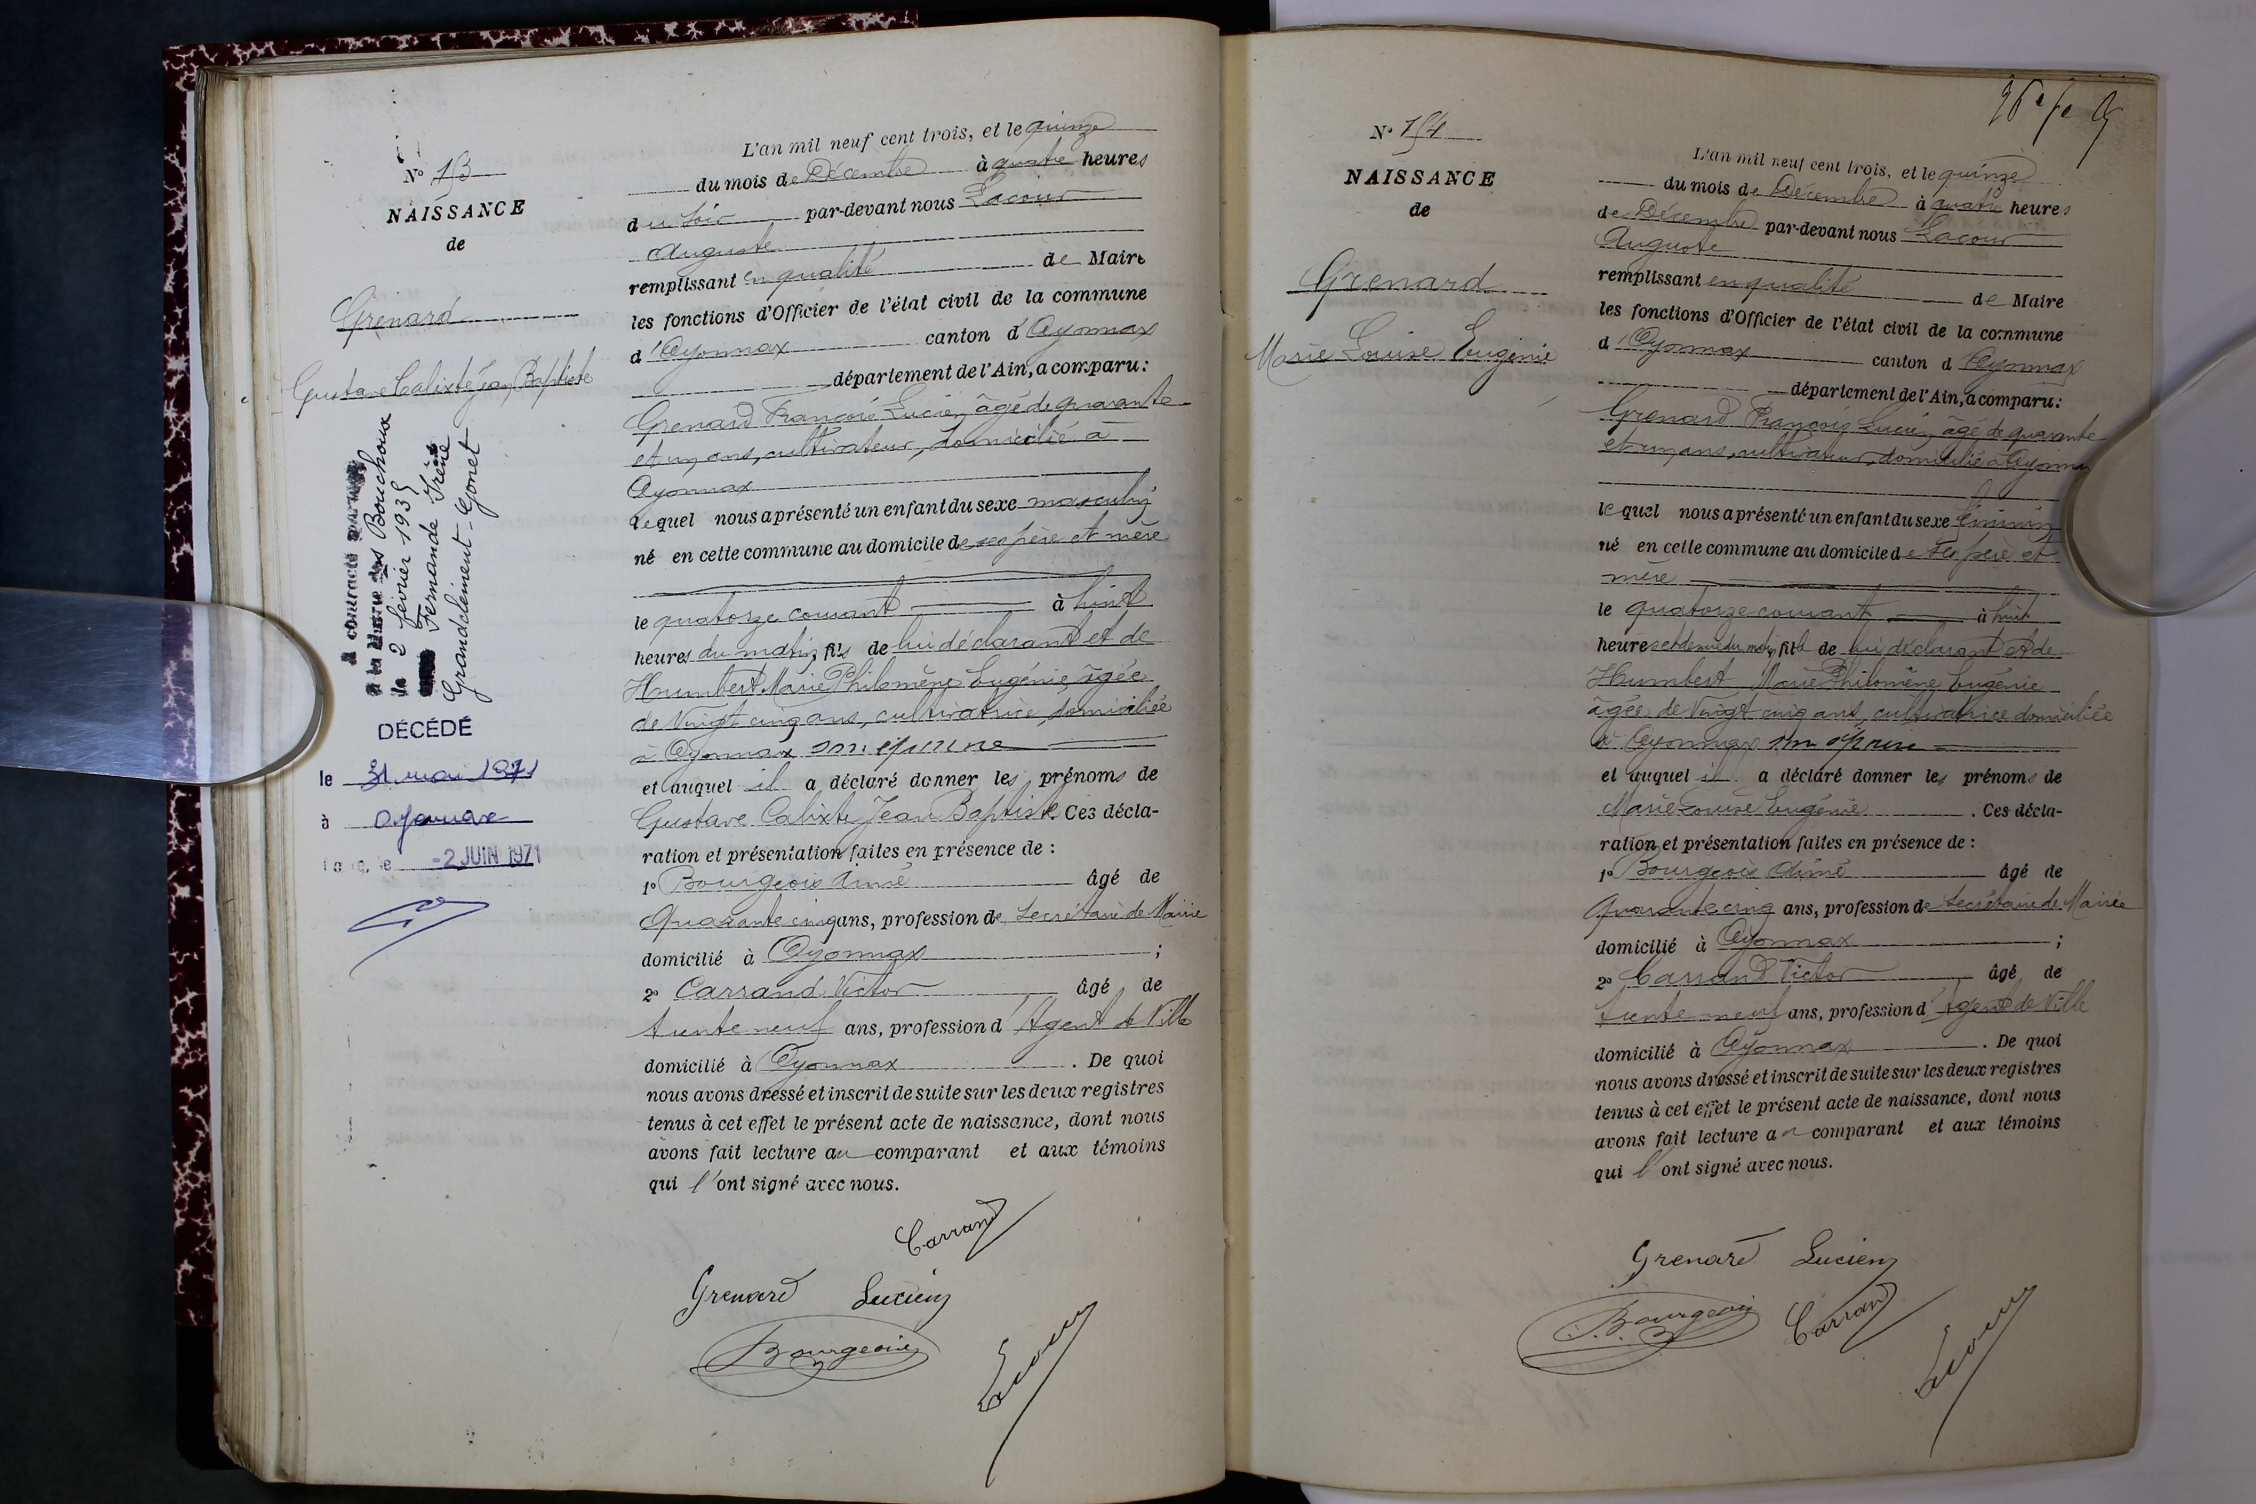 N° 153
NAISSANCE
de
Grenard
Gustave Calixte Jean Baptiste
A contracté mariage
à la Mairie des Bouchoux
le 2 février 1935
Fernande Irène
Grandclément-Gonet
DÉCÉDÉ
le 31 mai 1971
à Oyonnax
le -2 JUIN 1971
L'an mil neuf cent trois, et le quinze
du mois de Décembre à quatre heures
du soir par-devant nous Lacour
Auguste
remplissant en qualité de Maire
les fonctions d'Officier de l'état civil de la commune
d'Oyonnax canton d'Oyonnax
département de l'Ain, a comparu:
Grenard François Lucien âgé de quarante
et un ans, cultivateur, domicilié à
Oyonnax
lequel nous a présenté un enfant du sexe masculin
né en cette commune au domicile de ses père et mère
le quatorze courant à huit
heures du matin, fils de lui déclarant et de
Humbert Marie Philomène Eugénie, âgée
de Vingt cinq ans, cultivatrice, domiciliée
à Oyonnax son épouse
et auquel il a déclaré donner les prénoms de
Gustave Calixte Jean Baptiste. Ces décla-
ration et présentation faites en présence de :
1° Bourgeois Aimé âgé de
Quarante cinq ans, profession de Secrétaire de Mairie
domicilié à Oyonnax ;
2° Carrand Victor âgé de
trente neuf ans, profession d'Agent de Ville
domicilié à Oyonnax . De quoi
nous avons dressé et inscrit de suite sur les deux registres
tenus à cet effet le présent acte de naissance, dont nous
avons fait lecture au comparant et aux témoins
qui l'ont signé avec nous.
Carrand
Grenard Lucien
Bourgeois
Lacour
N° 154
NAISSANCE
de
Grenard
Marie Louise Eugénie
L'an mil neuf cent trois, et le quinze
du mois de Décembre à quatre heures
de Décembre par-devant nous Lacour
Auguste
remplissant en qualité de Maire
les fonctions d'Officier de l'état civil de la commune
d'Oyonnax canton d'Oyonnax
département de l'Ain, a comparu:
Grenard François Lucien âgé de quarante
et un ans, cultivateur, domicilié à Oyonnax
lequel nous a présenté un enfant du sexe féminin
né en cette commune au domicile de ses père et
mère
le quatorze courant à huit
heures et demie du matin, fille de lui déclarant et de
Humbert Marie Philomène Eugénie
âgée de Vingt cinq ans, cultivatrice domiciliée
à Oyonnax son épouse
et auquel il a déclaré donner les prénoms de
Marie Louise Eugénie . Ces décla-
ration et présentation faites en présence de :
1° Bourgeois Aimé âgé de
Quarante cinq ans, profession de Secrétaire de Mairie
domicilié à Oyonnax ;
2° Carrand Victor âgé de
trente neuf ans, profession d'Agent de Ville
domicilié à Oyonnax . De quoi
nous avons dressé et inscrit de suite sur les deux registres
tenus à cet effet le présent acte de naissance, dont nous
avons fait lecture au comparant et aux témoins
qui l'ont signé avec nous.
Grenard Lucien
Bourgeois Carrand
Lacour